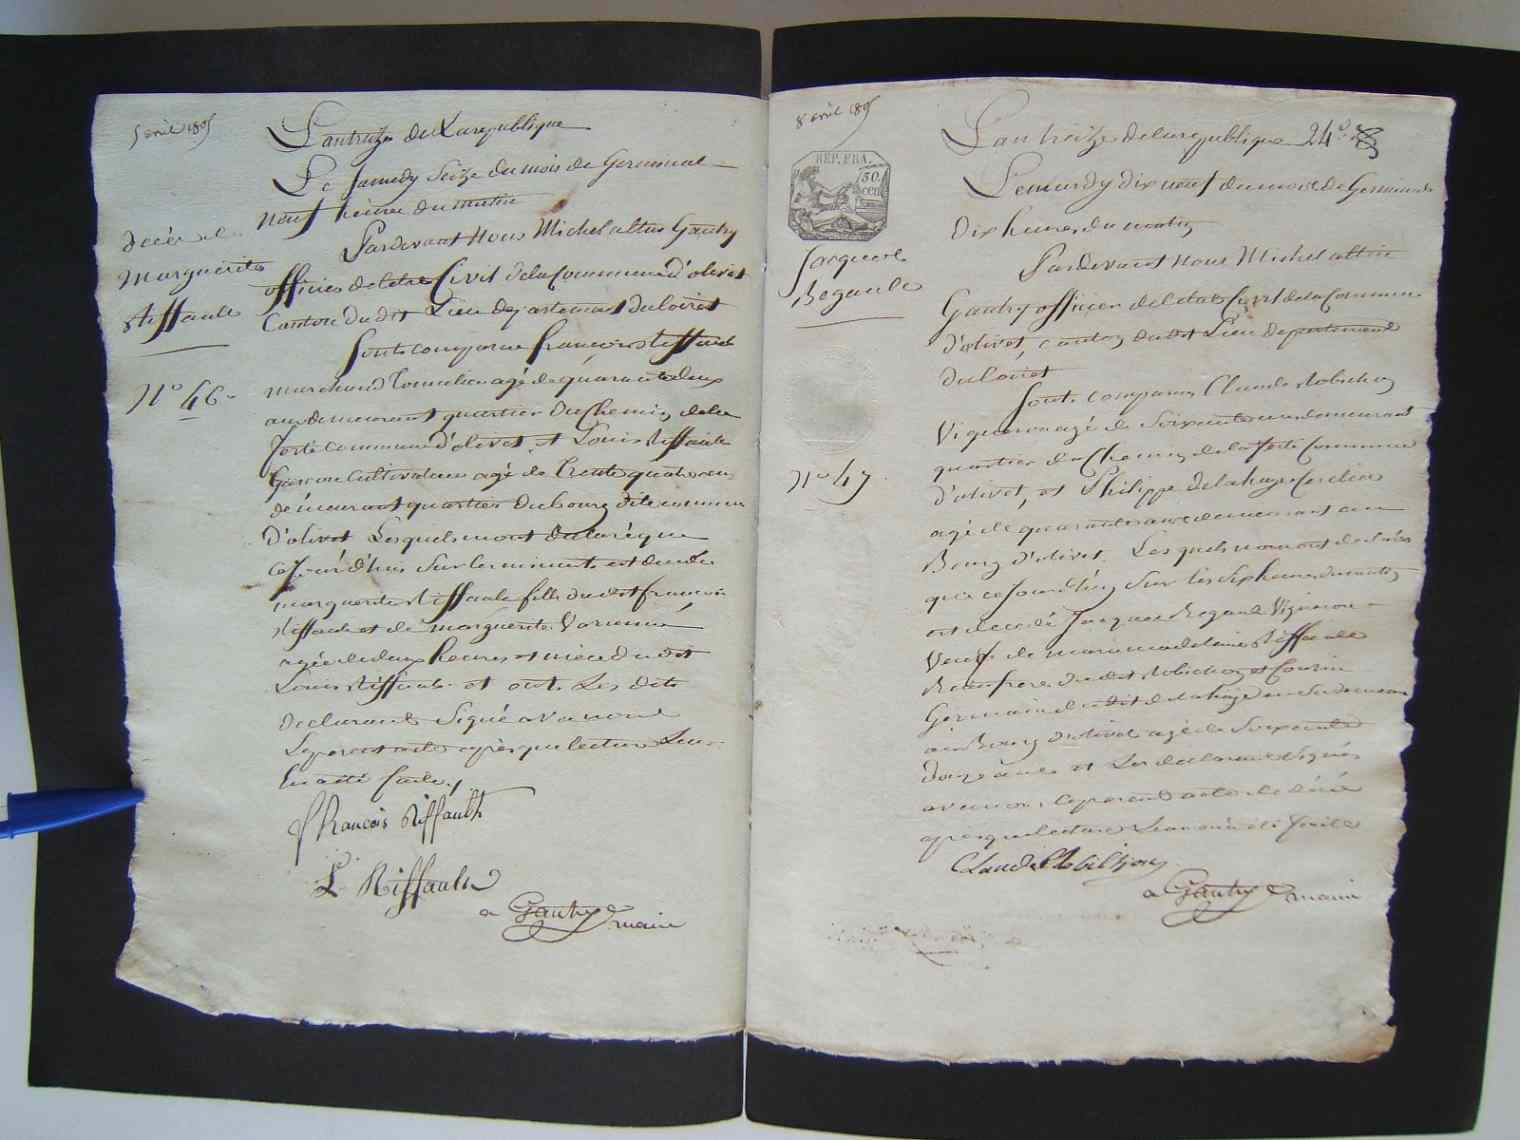 5 avril 1805
L'an treize de La republique
Le Samedy Seize du mois de Germinal
neuf heures du matin
Pardevant Nous Michel altin Gautry
officier de letat Civil de la Commune d'olivet
Canton du dit Lieu departement du loiret
Sont comparu francois Riffault
marchand Tonnelier agé de quarante deux
ans demeurant quartier du Chemin de la
ferté commune d'olivet et Louis Riffault
Garcon Cultivateur agé de Trente quatre ans
demeurant quartier du bourg dite commune
d'olivet Lesquels mont declaré que
cejourd'hui Sur les minuit est decedée
marguerite Riffault fille du dit francois
Riffault et de marguerite
agée de deux heures et niece du dit
Louis Riffault et ont Les dits
declarant Signé avec nous
Le present acte après que lecture Leur
En a été faite
décès de
Marguerite
Riffault
N° 46
François Riffault
L Riffault
a Gautry maire
8 avril 1805
REP. FRA.
50
cen
Jacques
Begault
N° 47
L'an treize de la republique 24e
Le mardy dix neuf du mois de Germinal
dix heures du matin
Pardevant Nous Michel altin
Gautry officier de l'etat Civil de la Commune
d'olivet, canton du dit Lieu departement
du loiret
Sont comparus Claude Robichon
Vigneron agé de Soixante ans demeurant
quartier du Chemin de la ferté Commune
d'olivet, et Philippe delahaye
agé de quarante ans demeurant au
Bourg d'olivet, Lesquels nous ont declaré
que cejourdhuy Sur les Six heures du matin
est decedé Jacques Begault Vigneron
Veuf de marie madelaine Riffault
Beau frere du dit Robichon et Cousin
Germain du dit delahaye en Sa demeure
au Bourg d'olivet agé de Soixante
douze ans et Les declarant Signé
avec nous le present acte de décès
après que lecture Leur en a été faite
Claude Robichon
a Gautry maire